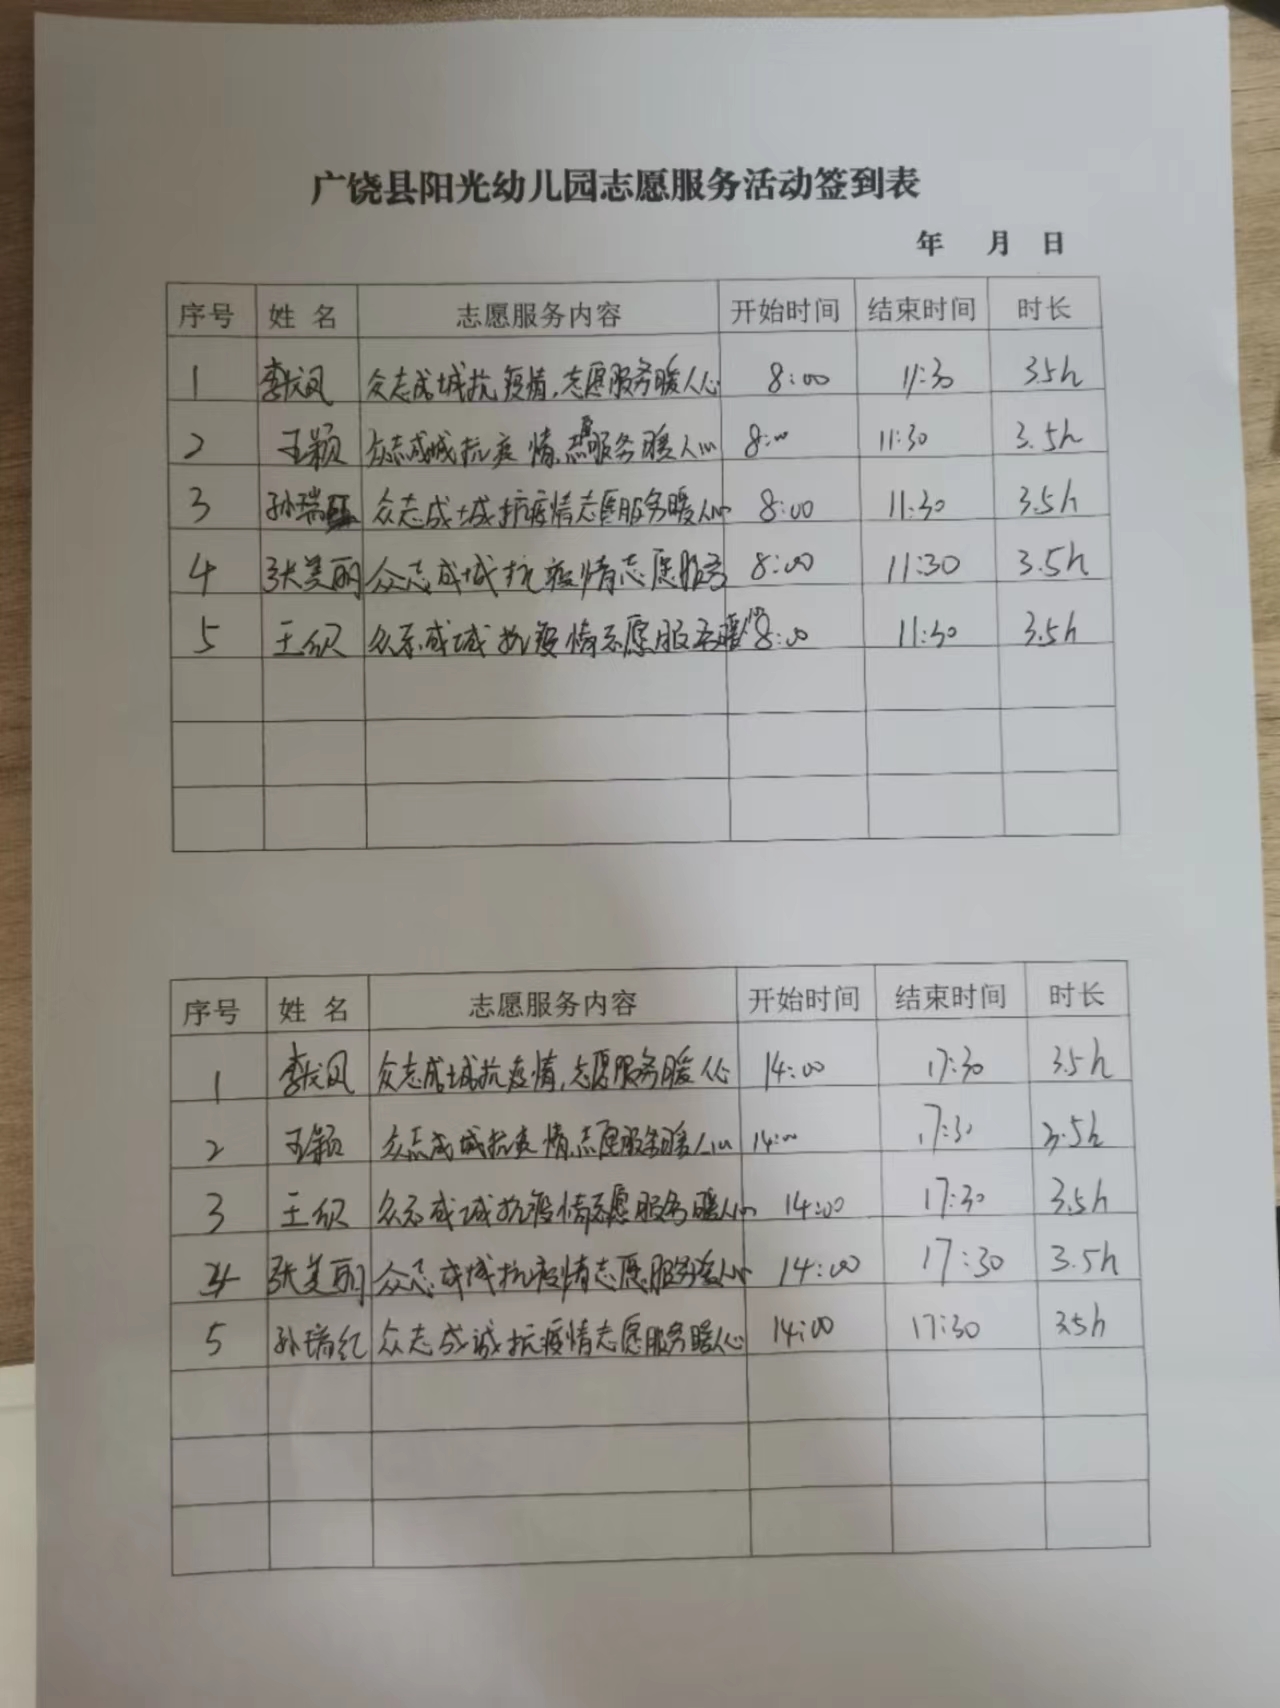 广饶县阳光幼儿园志愿服务活动签到表
年 月 日
序号 姓名 志愿服务内容 开始时间 结束时间 时长
1 李成凤 众志成城抗疫情,志愿服务暖人心 8:00 11:30 3.5h
2 王颖 众志成城抗疫情,志愿服务暖人心 8:00 11:30 3.5h
3 孙瑞 众志成城抗疫情志愿服务暖人心 8:00 11:30 3.5h
4 张美丽 众志成城抗疫情志愿服务 8:00 11:30 3.5h
5 王 众志成城抗疫情志愿服务暖 8:00 11:30 3.5h
序号 姓名 志愿服务内容 开始时间 结束时间 时长
1 李成凤 众志成城抗疫情,志愿服务暖人心 14:00 17:30 3.5h
2 王颖 众志成城抗疫情,志愿服务暖人心 14:00 17:30 3.5h
3 王 众志成诚抗疫情志愿服务暖人心 14:00 17:30 3.5h
4 张美丽 众志成城抗疫情志愿服务暖人心 14:00 17:30 3.5h
5 孙瑞红 众志成诚抗疫情志愿服务暖人心 14:00 17:30 3.5h